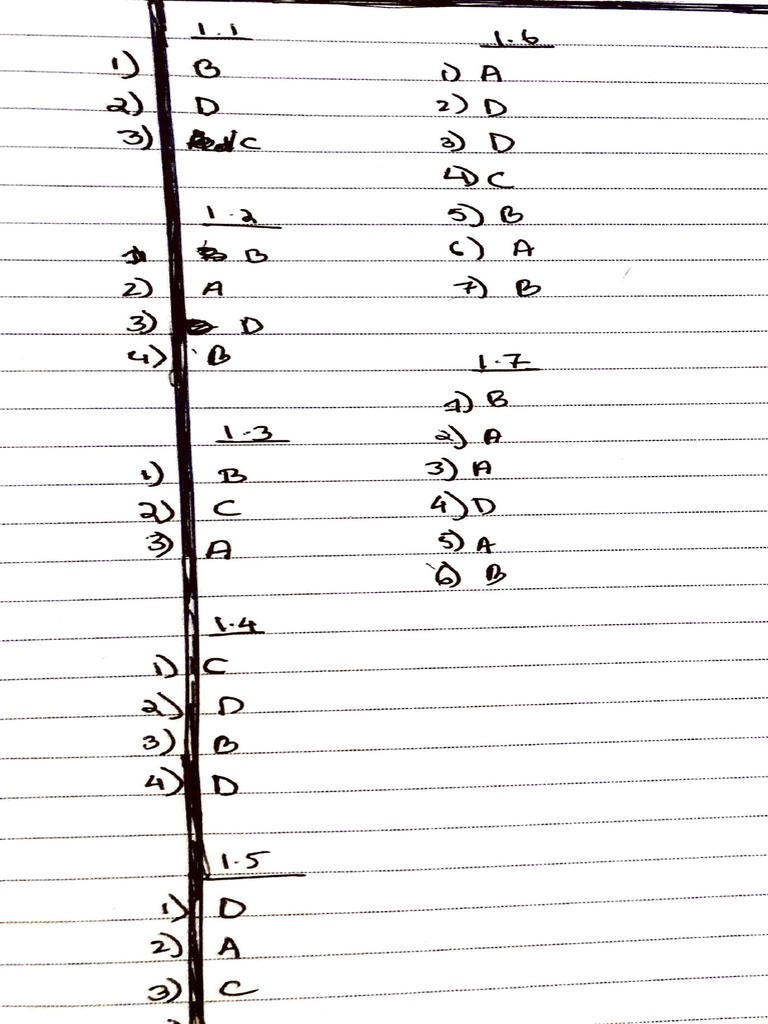 1.1
1) B
2) D
3) C
1.2
B
2) A
3) D
4) B
1.3
1) B
2) C
3) A
1.4
1) C
2) D
3) B
4) D
1.5
1) D
2) A
3) C
1.6
1) A
2) D
3) D
4) C
5) B
6) A
7) B
1.7
1) B
2) A
3) A
4) D
5) A
6) B